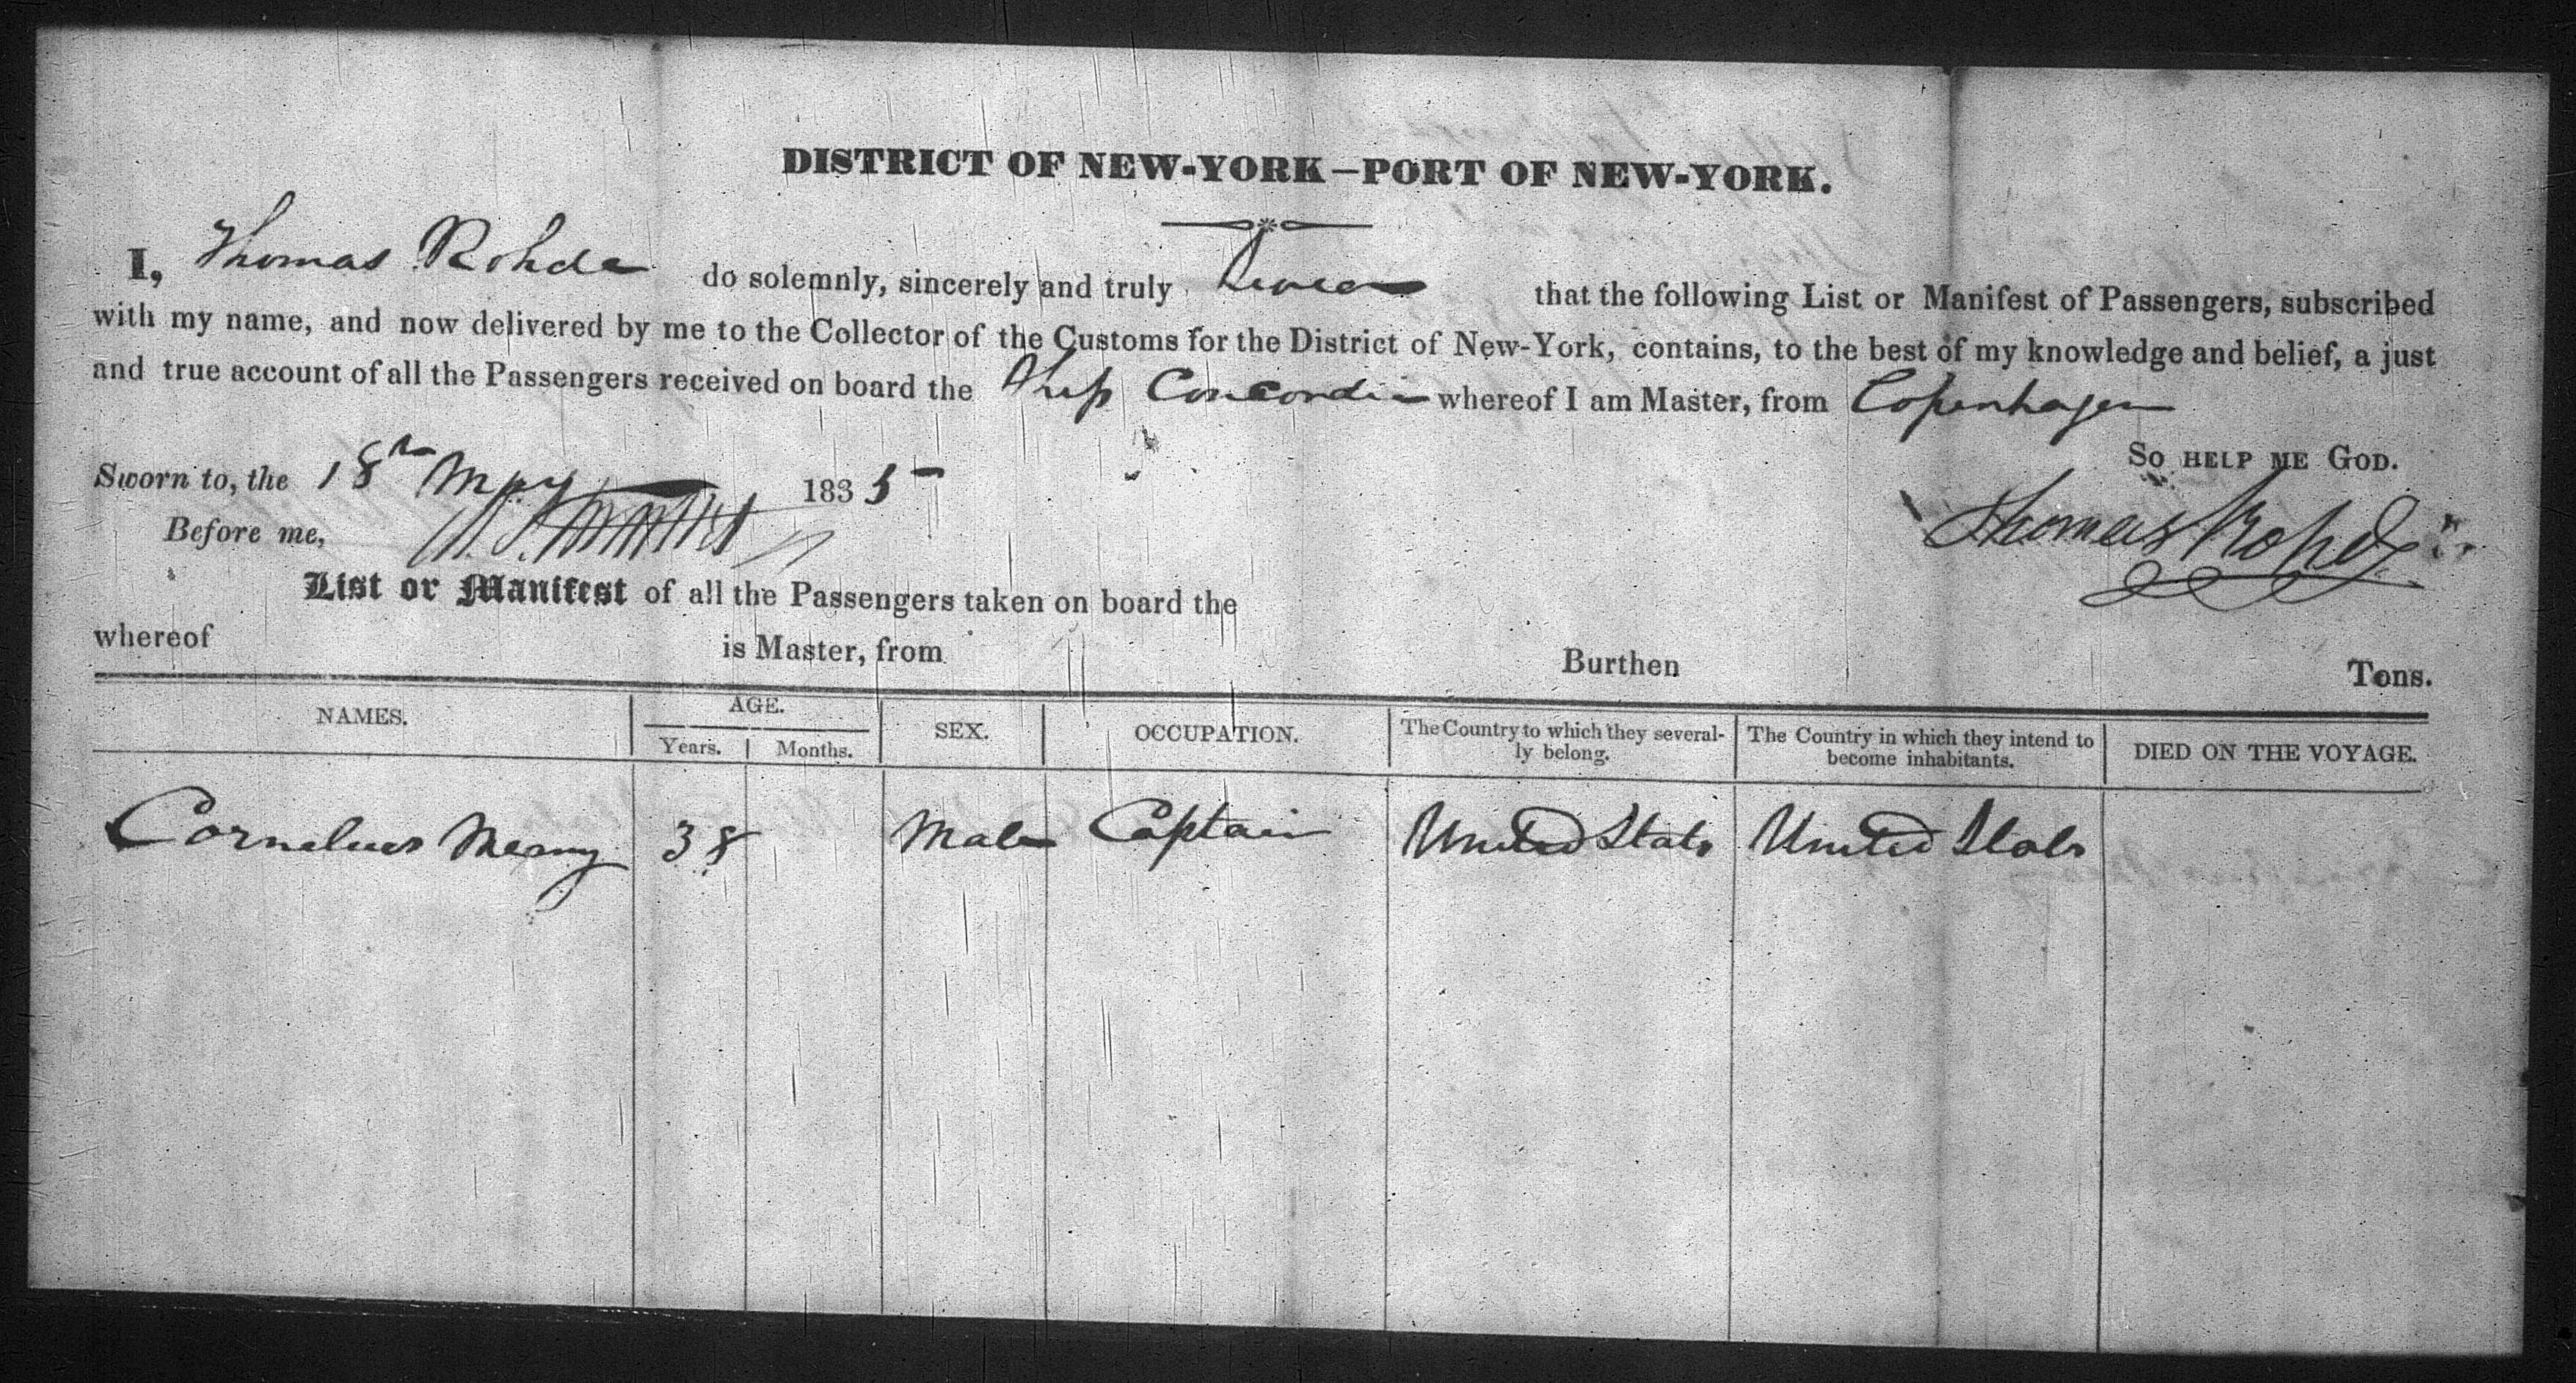 DISTRICT OF NEW-YORK—PORT OF NEW-YORK.
I, Thomas Rohde do solemnly, sincerely and truly swear that the following List or Manifest of Passengers, subscribed
with my name, and now delivered by me to the Collector of the Customs for the District of New-York, contains, to the best of my knowledge and belief, a just
and true account of all the Passengers received on board the Ship Concordia whereof I am Master, from Copenhagen
So help me God.
Sworn to, the 18th May 1835
Thomas Rohde
Before me,
List or Manifest of all the Passengers taken on board the
whereof is Master, from Burthen Tons.
NAMES. AGE. SEX. OCCUPATION. The Country to which they several- The Country in which they intend to DIED ON THE VOYAGE.
Years. Months. ly belong. become inhabitants.
Cornelius 38 Male Captain United States United States